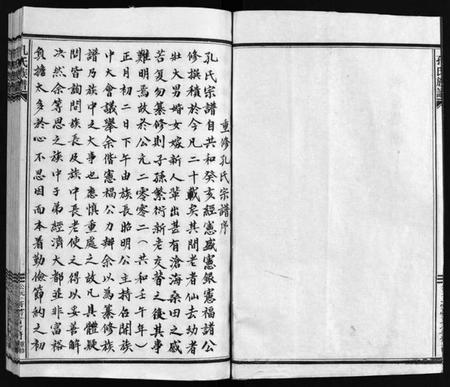 重修孔氏宗譜序
孔氏宗譜自共和癸亥經憲盛憲銀憲福諸公
修撰積於今凡二十載矣其間老者仙去幼者
壯大男婚女嫁新人輩出甚有滄海桑田之感
苦復勿纂修則子孫繁衍新老交替之後其事
難明焉故於公元二零零二（共和壬午年）
正月初二日下午由族長昭明公主持召開族
中大會議舉余偕憲福公力辦余以為纂修族
譜乃族中之大事也應慎重處之故凡具體疑
問皆詢問族長及族中長老使之得以妥善解
決然余等思之族中子弟經濟大都並非富裕
負擔太多於心不忍因而本着勤儉節約之初
孔氏族譜